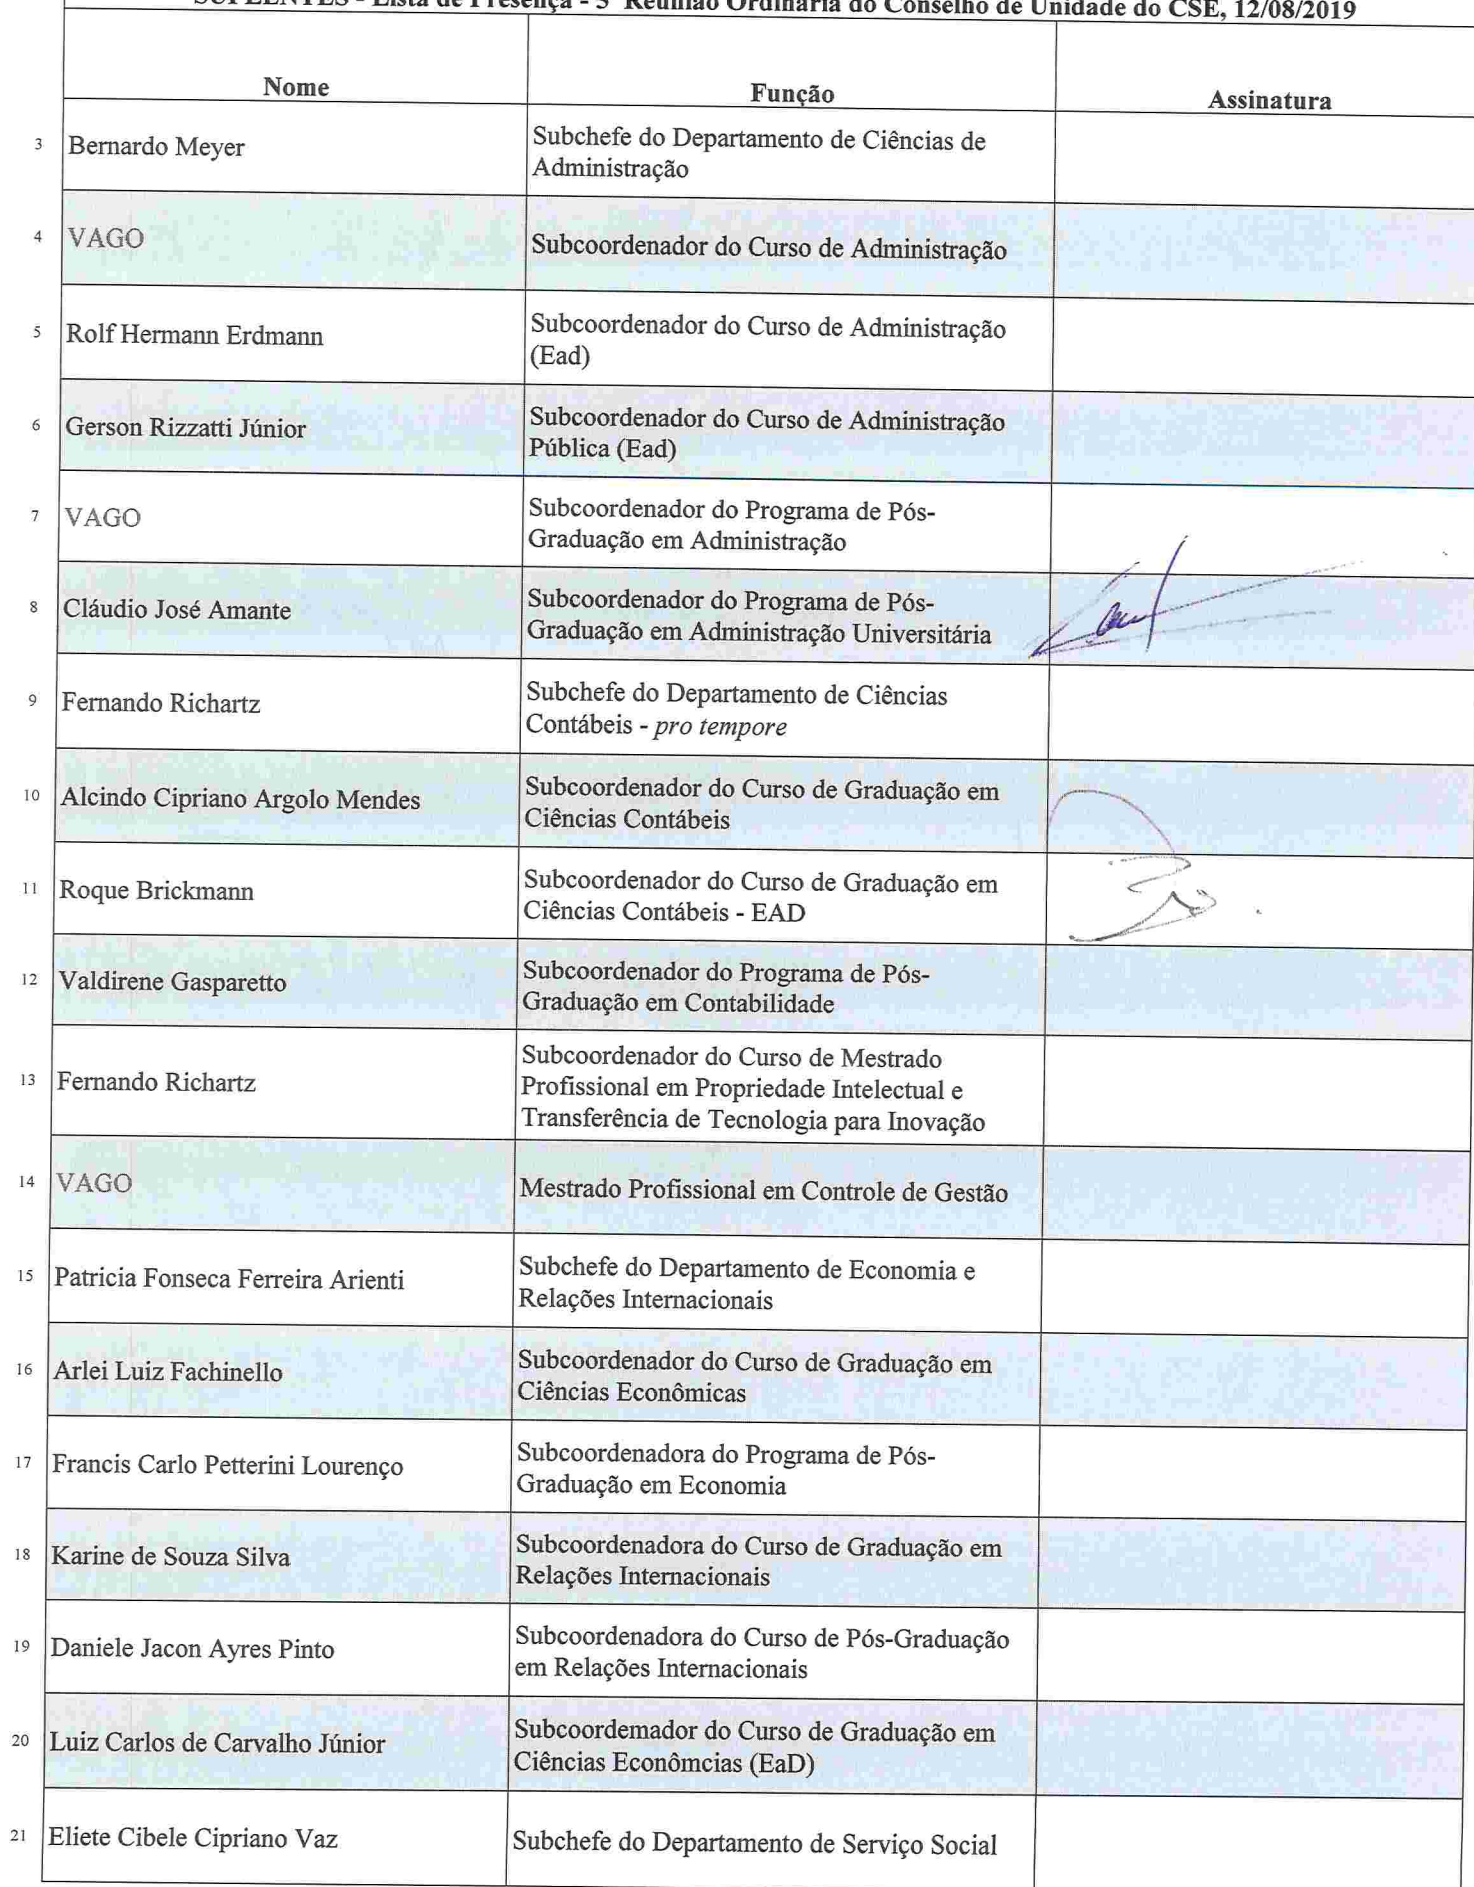 SUPLENTES - Lista de Presença - 5ª Reunião Ordinária do Conselho de Unidade do CSE, 12/08/2019
Nome Função Assinatura
3 Bernardo Meyer Subchefe do Departamento de Ciências de
Administração
4 VAGO Subcoordenador do Curso de Administração
5 Rolf Hermann Erdmann Subcoordenador do Curso de Administração
(Ead)
6 Gerson Rizzatti Júnior Subcoordenador do Curso de Administração
Pública (Ead)
7 VAGO Subcoordenador do Programa de Pós-
Graduação em Administração
8 Cláudio José Amante Subcoordenador do Programa de Pós-
Graduação em Administração Universitária
9 Fernando Richartz Subchefe do Departamento de Ciências
Contábeis - pro tempore
10 Alcindo Cipriano Argolo Mendes Subcoordenador do Curso de Graduação em
Ciências Contábeis
11 Roque Brickmann Subcoordenador do Curso de Graduação em
Ciências Contábeis - EAD
12 Valdirene Gasparetto Subcoordenador do Programa de Pós-
Graduação em Contabilidade
13 Fernando Richartz Subcoordenador do Curso de Mestrado
Profissional em Propriedade Intelectual e
Transferência de Tecnologia para Inovação
14 VAGO Mestrado Profissional em Controle de Gestão
15 Patricia Fonseca Ferreira Arienti Subchefe do Departamento de Economia e
Relações Internacionais
16 Arlei Luiz Fachinello Subcoordenador do Curso de Graduação em
Ciências Econômicas
17 Francis Carlo Petterini Lourenço Subcoordenadora do Programa de Pós-
Graduação em Economia
18 Karine de Souza Silva Subcoordenadora do Curso de Graduação em
Relações Internacionais
19 Daniele Jacon Ayres Pinto Subcoordenadora do Curso de Pós-Graduação
em Relações Internacionais
20 Luiz Carlos de Carvalho Júnior Subcoordemador do Curso de Graduação em
Ciências Econômcias (EaD)
21 Eliete Cibele Cipriano Vaz Subchefe do Departamento de Serviço Social